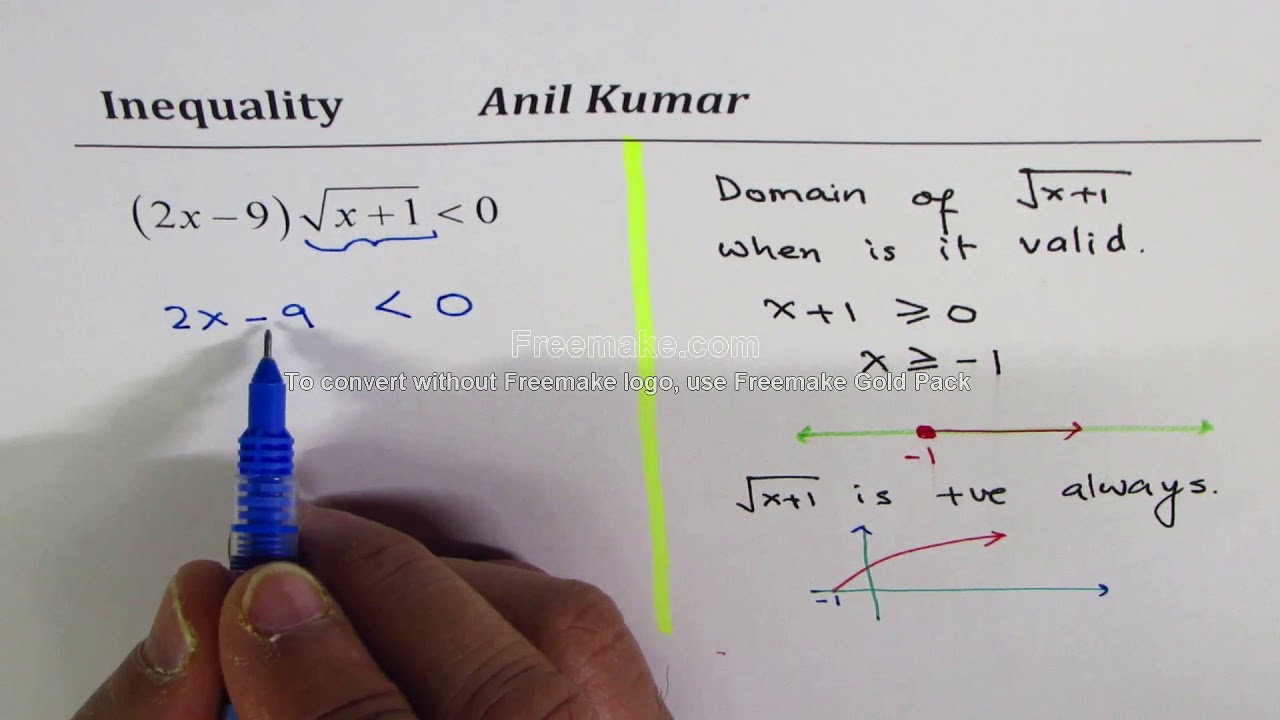 Inequality Anil Kumar
(2x − 9) √(x + 1) < 0
2x − 9 < 0
Domain of √(x+1)
when is it valid.
x + 1 ≥ 0
x ≥ −1
−1
√(x+1) is +ve always.
−1
Freemake.com
To convert without Freemake logo, use Freemake Gold Pack